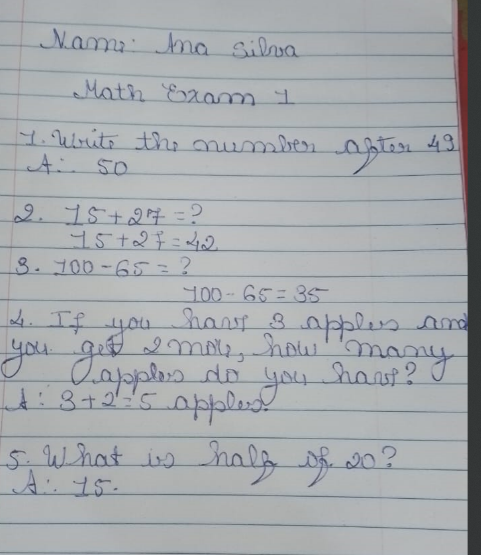 Name: Ana Silva
Math Exam 1
1. Write the number after 49
A:. 50
2. 15+27=?
15+27=42
3. 100-65=?
100-65=35
4. If you have 3 apples and
you get 2 more, how many
apples do you have?
A: 3+2=5 apples.
5. What is half of 20?
A:. 15.